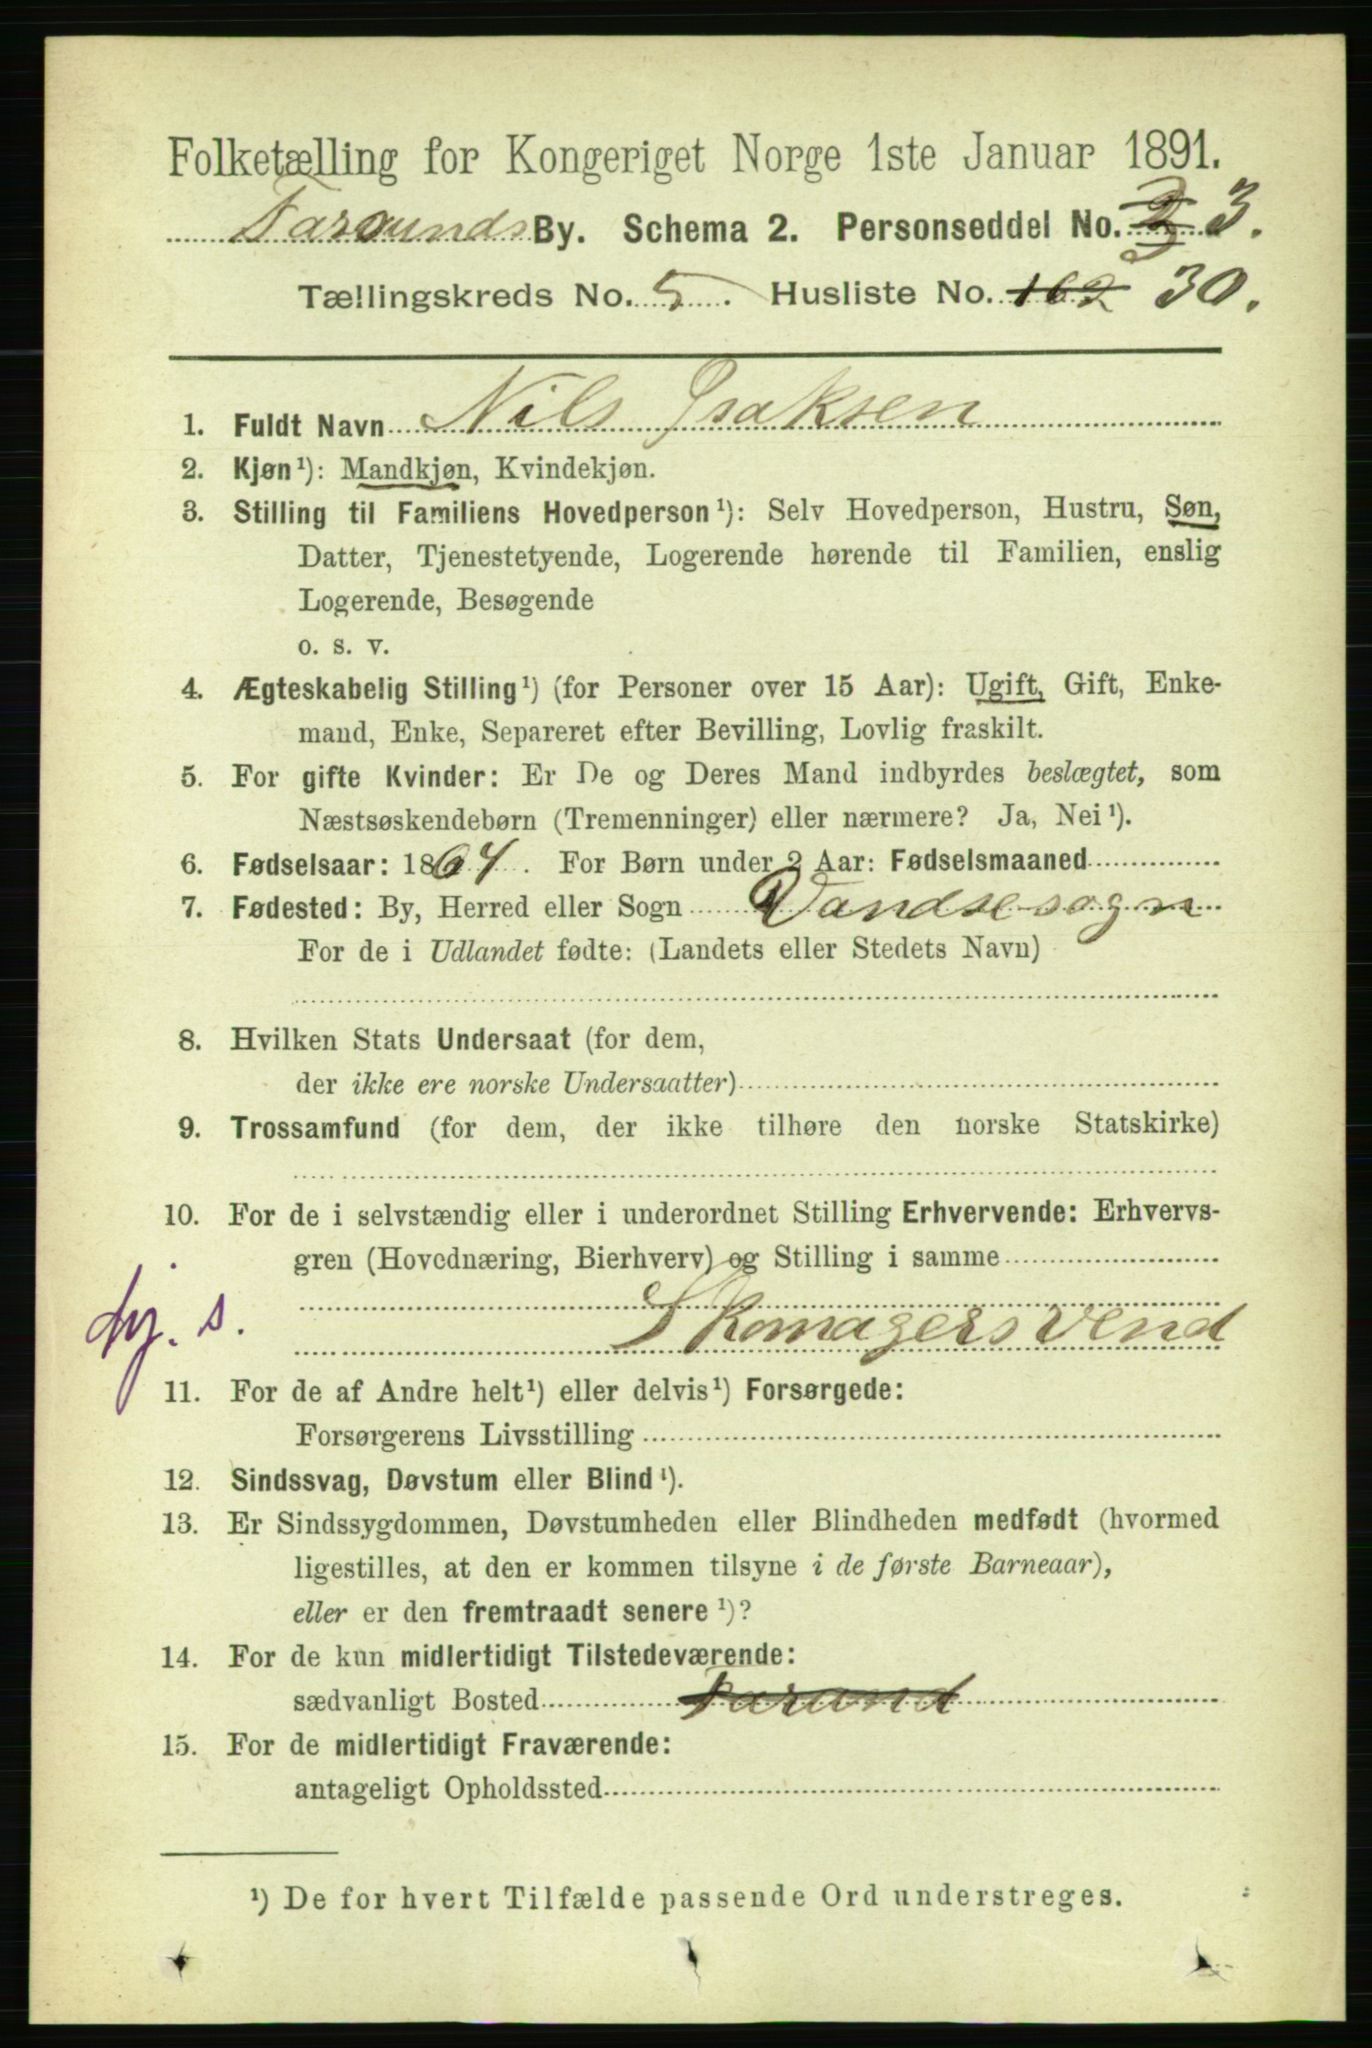 Folketælling for Kongeriget Norge 1ste Januar 1891.
Farsunds By. Schema 2. Personseddel No. 3.
Tællingskreds No. 5. Husliste No. 162 30.
1. Fuldt Navn Nils Isaksen
2. Kjøn¹): Mandkjøn, Kvindekjøn.
3. Stilling til Familiens Hovedperson¹): Selv Hovedperson, Hustru, Søn,
Datter, Tjenestetyende, Logerende hørende til Familien, enslig
Logerende, Besøgende
o. s. v.
4. Ægteskabelig Stilling¹) (for Personer over 15 Aar): Ugift, Gift, Enke-
mand, Enke, Separeret efter Bevilling, Lovlig fraskilt.
5. For gifte Kvinder: Er De og Deres Mand indbyrdes beslægtet, som
Næstsøskendebørn (Tremenninger) eller nærmere? Ja, Nei¹).
6. Fødselsaar: 1864. For Børn under 2 Aar: Fødselsmaaned
7. Fødested: By, Herred eller Sogn Vandsesogn
For de i Udlandet fødte: (Landets eller Stedets Navn)
8. Hvilken Stats Undersaat (for dem,
der ikke ere norske Undersaatter)
9. Trossamfund (for dem, der ikke tilhøre den norske Statskirke)
10. For de i selvstændig eller i underordnet Stilling Erhvervende: Erhvervs-
gren (Hovednæring, Bierhverv) og Stilling i samme
Skomagersvend
11. For de af Andre helt¹) eller delvis¹) Forsørgede:
Forsørgerens Livsstilling
12. Sindssvag, Døvstum eller Blind¹).
13. Er Sindssygdommen, Døvstumheden eller Blindheden medfødt (hvormed
ligestilles, at den er kommen tilsyne i de første Barneaar),
eller er den fremtraadt senere¹)?
14. For de kun midlertidigt Tilstedeværende:
sædvanligt Bosted Farund
15. For de midlertidigt Fraværende:
antageligt Opholdssted
¹) De for hvert Tilfælde passende Ord understreges.